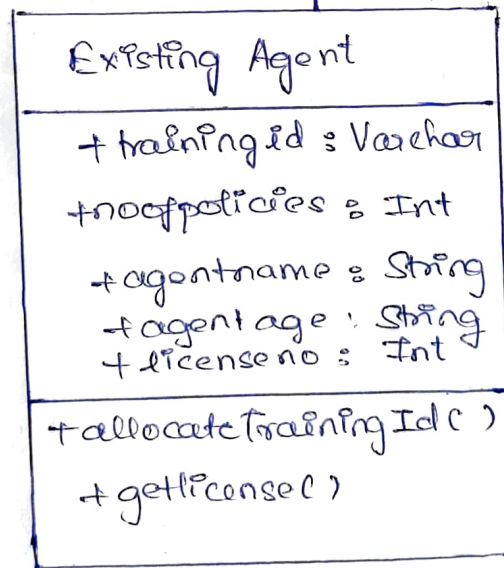 Existing Agent
+ trainingid : Varchar
+noofpolicies : Int
+agentname : String
+agentage : String
+licenseno : Int
+allocateTrainingId()
+getlicense()